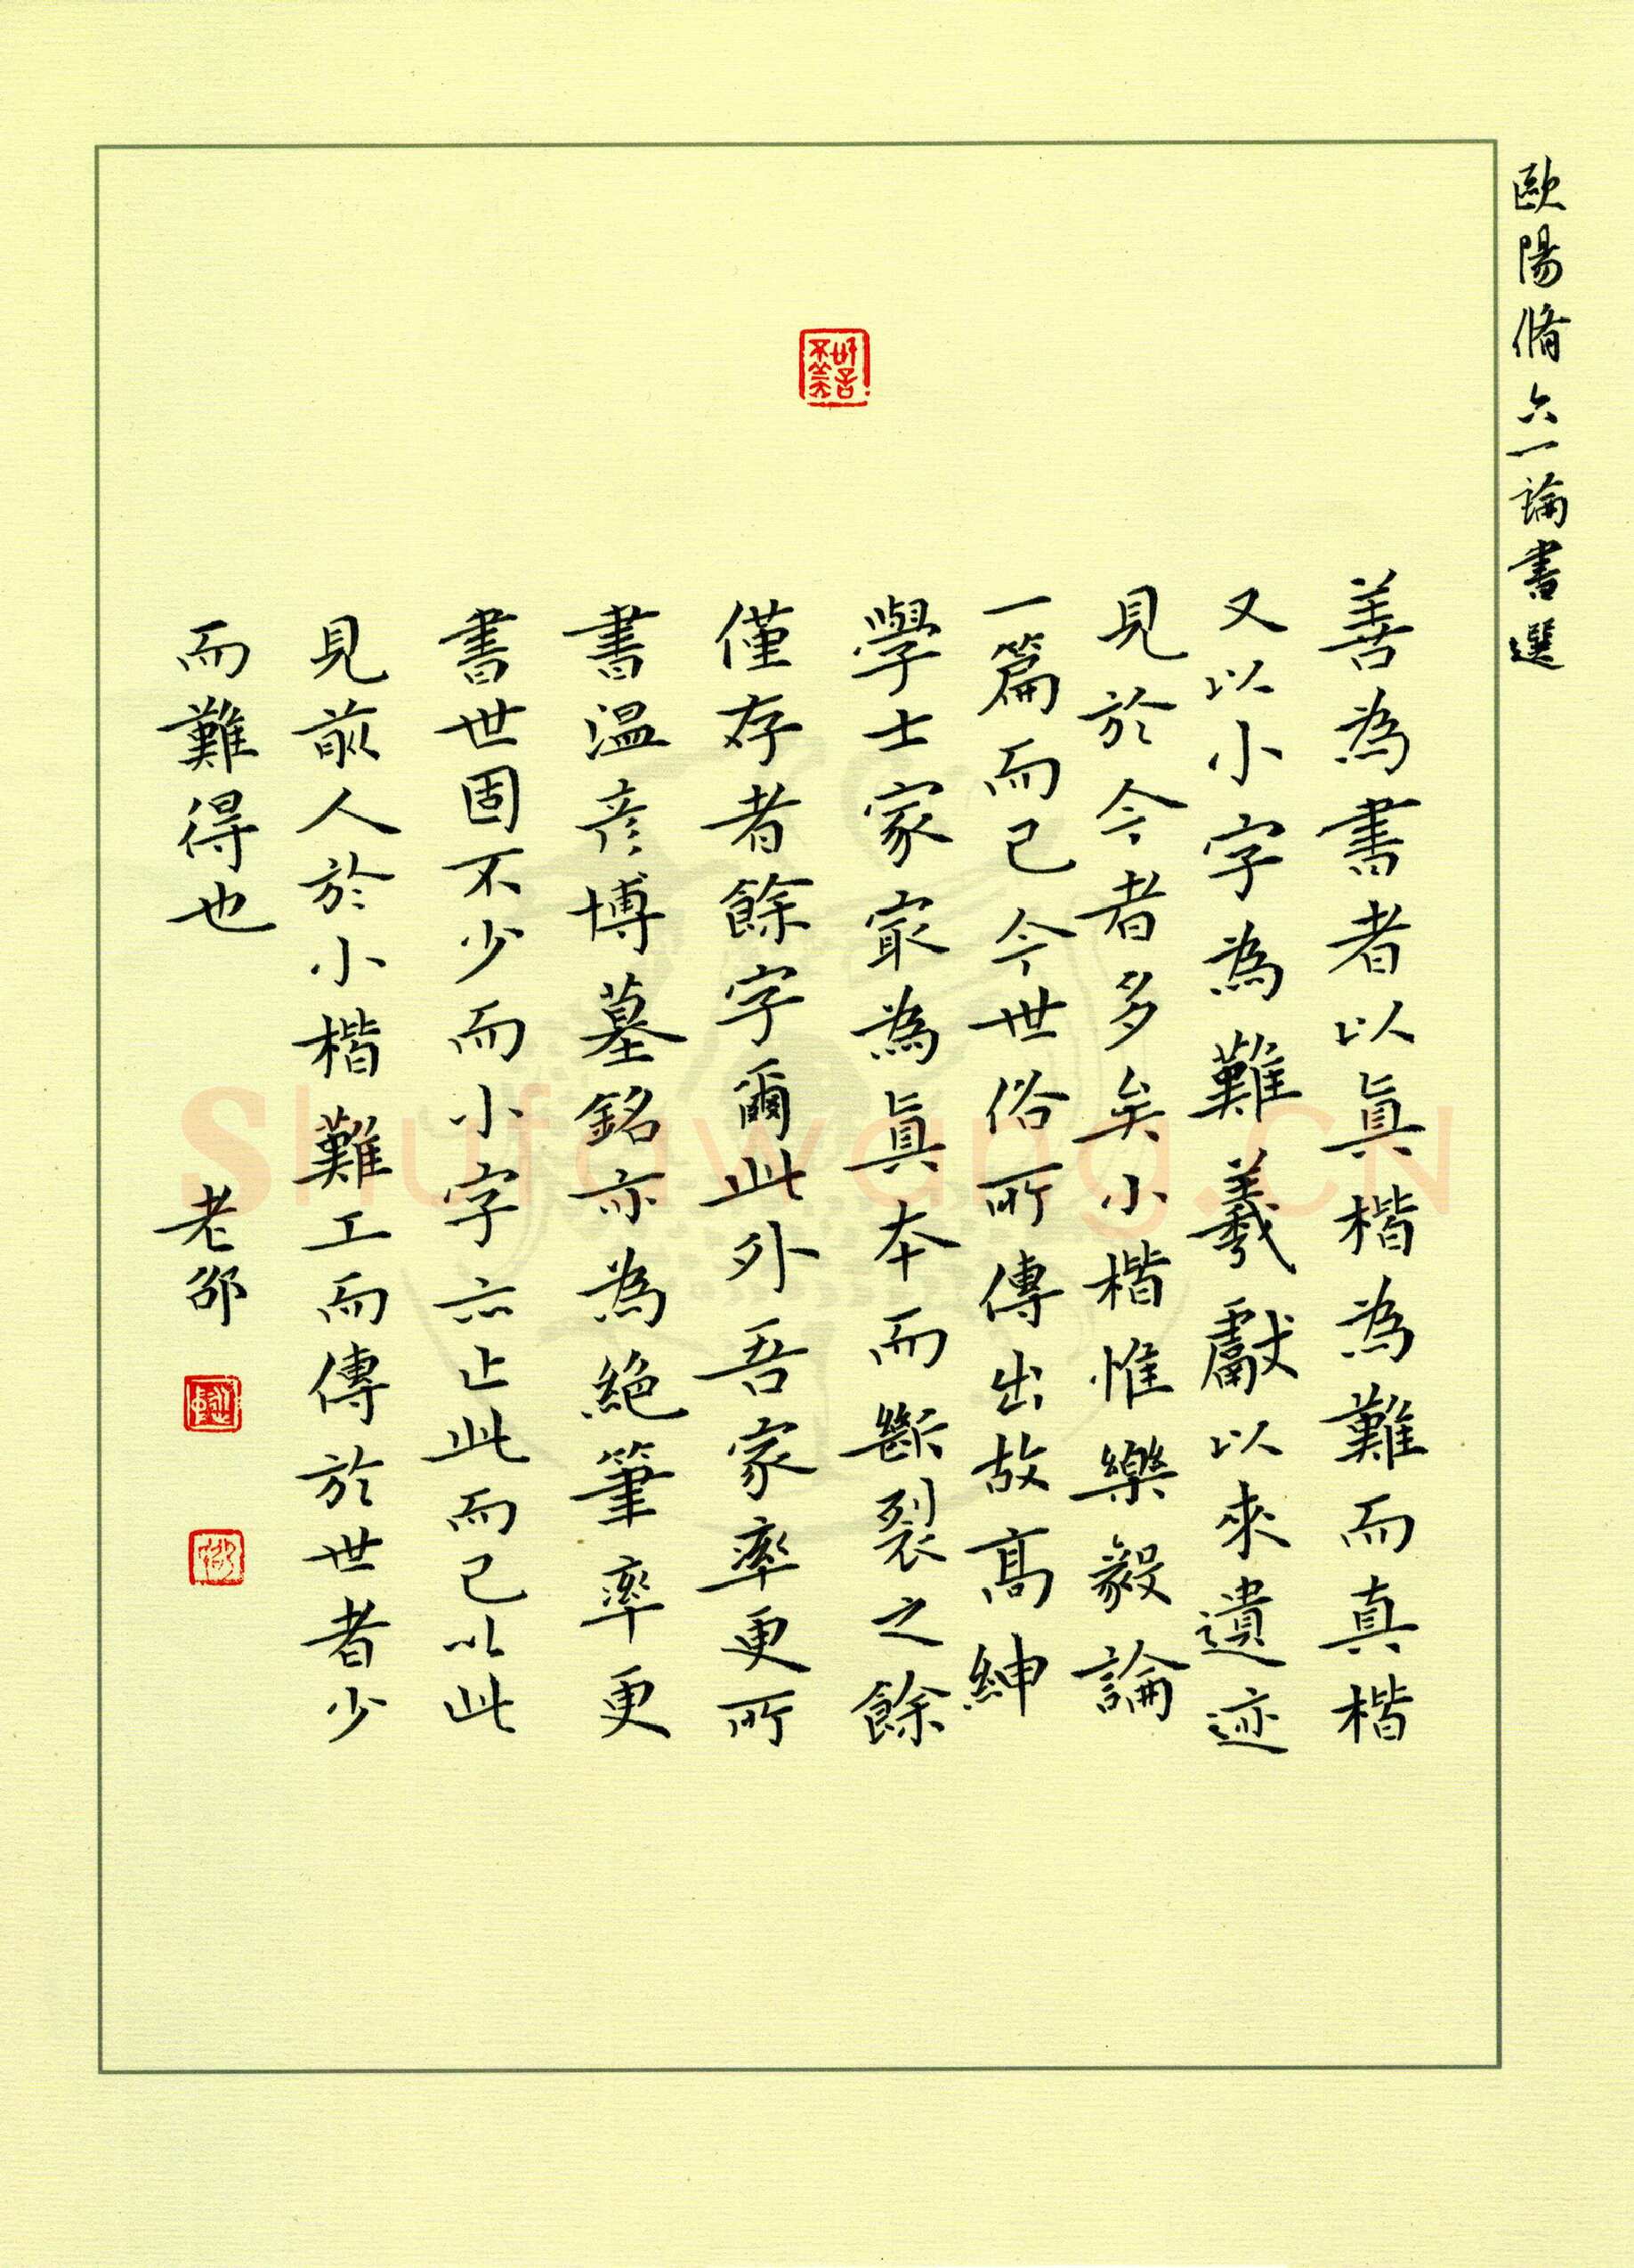 歐陽脩六一論書選
善為書者以眞楷為難而真楷
又以小字為難羲獻以來遺迹
見於今者多矣小楷惟樂毅論
一篇而已今世俗所傳出故高紳
學士家寂為眞本而斷裂之餘
僅存者餘字爾此外吾家率更所
書温彦博墓銘亦為絕筆率更
書世固不少而小字亦止此而已以此
見前人於小楷難工而傳於世者少
而難得也
老邵
Shufawang.CN